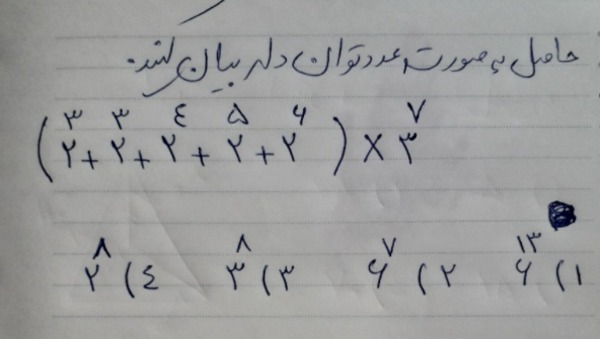 حاصل به صورت عدد توان دار بیان کنید.
(۲^۳ + ۲^۳ + ۲^٤ + ۲^۵ + ۲^۶) × ۳^۷
۱) ۶^۱۳ ۲) ۶^۷ ۳) ۳^۸ ٤) ۲^۸